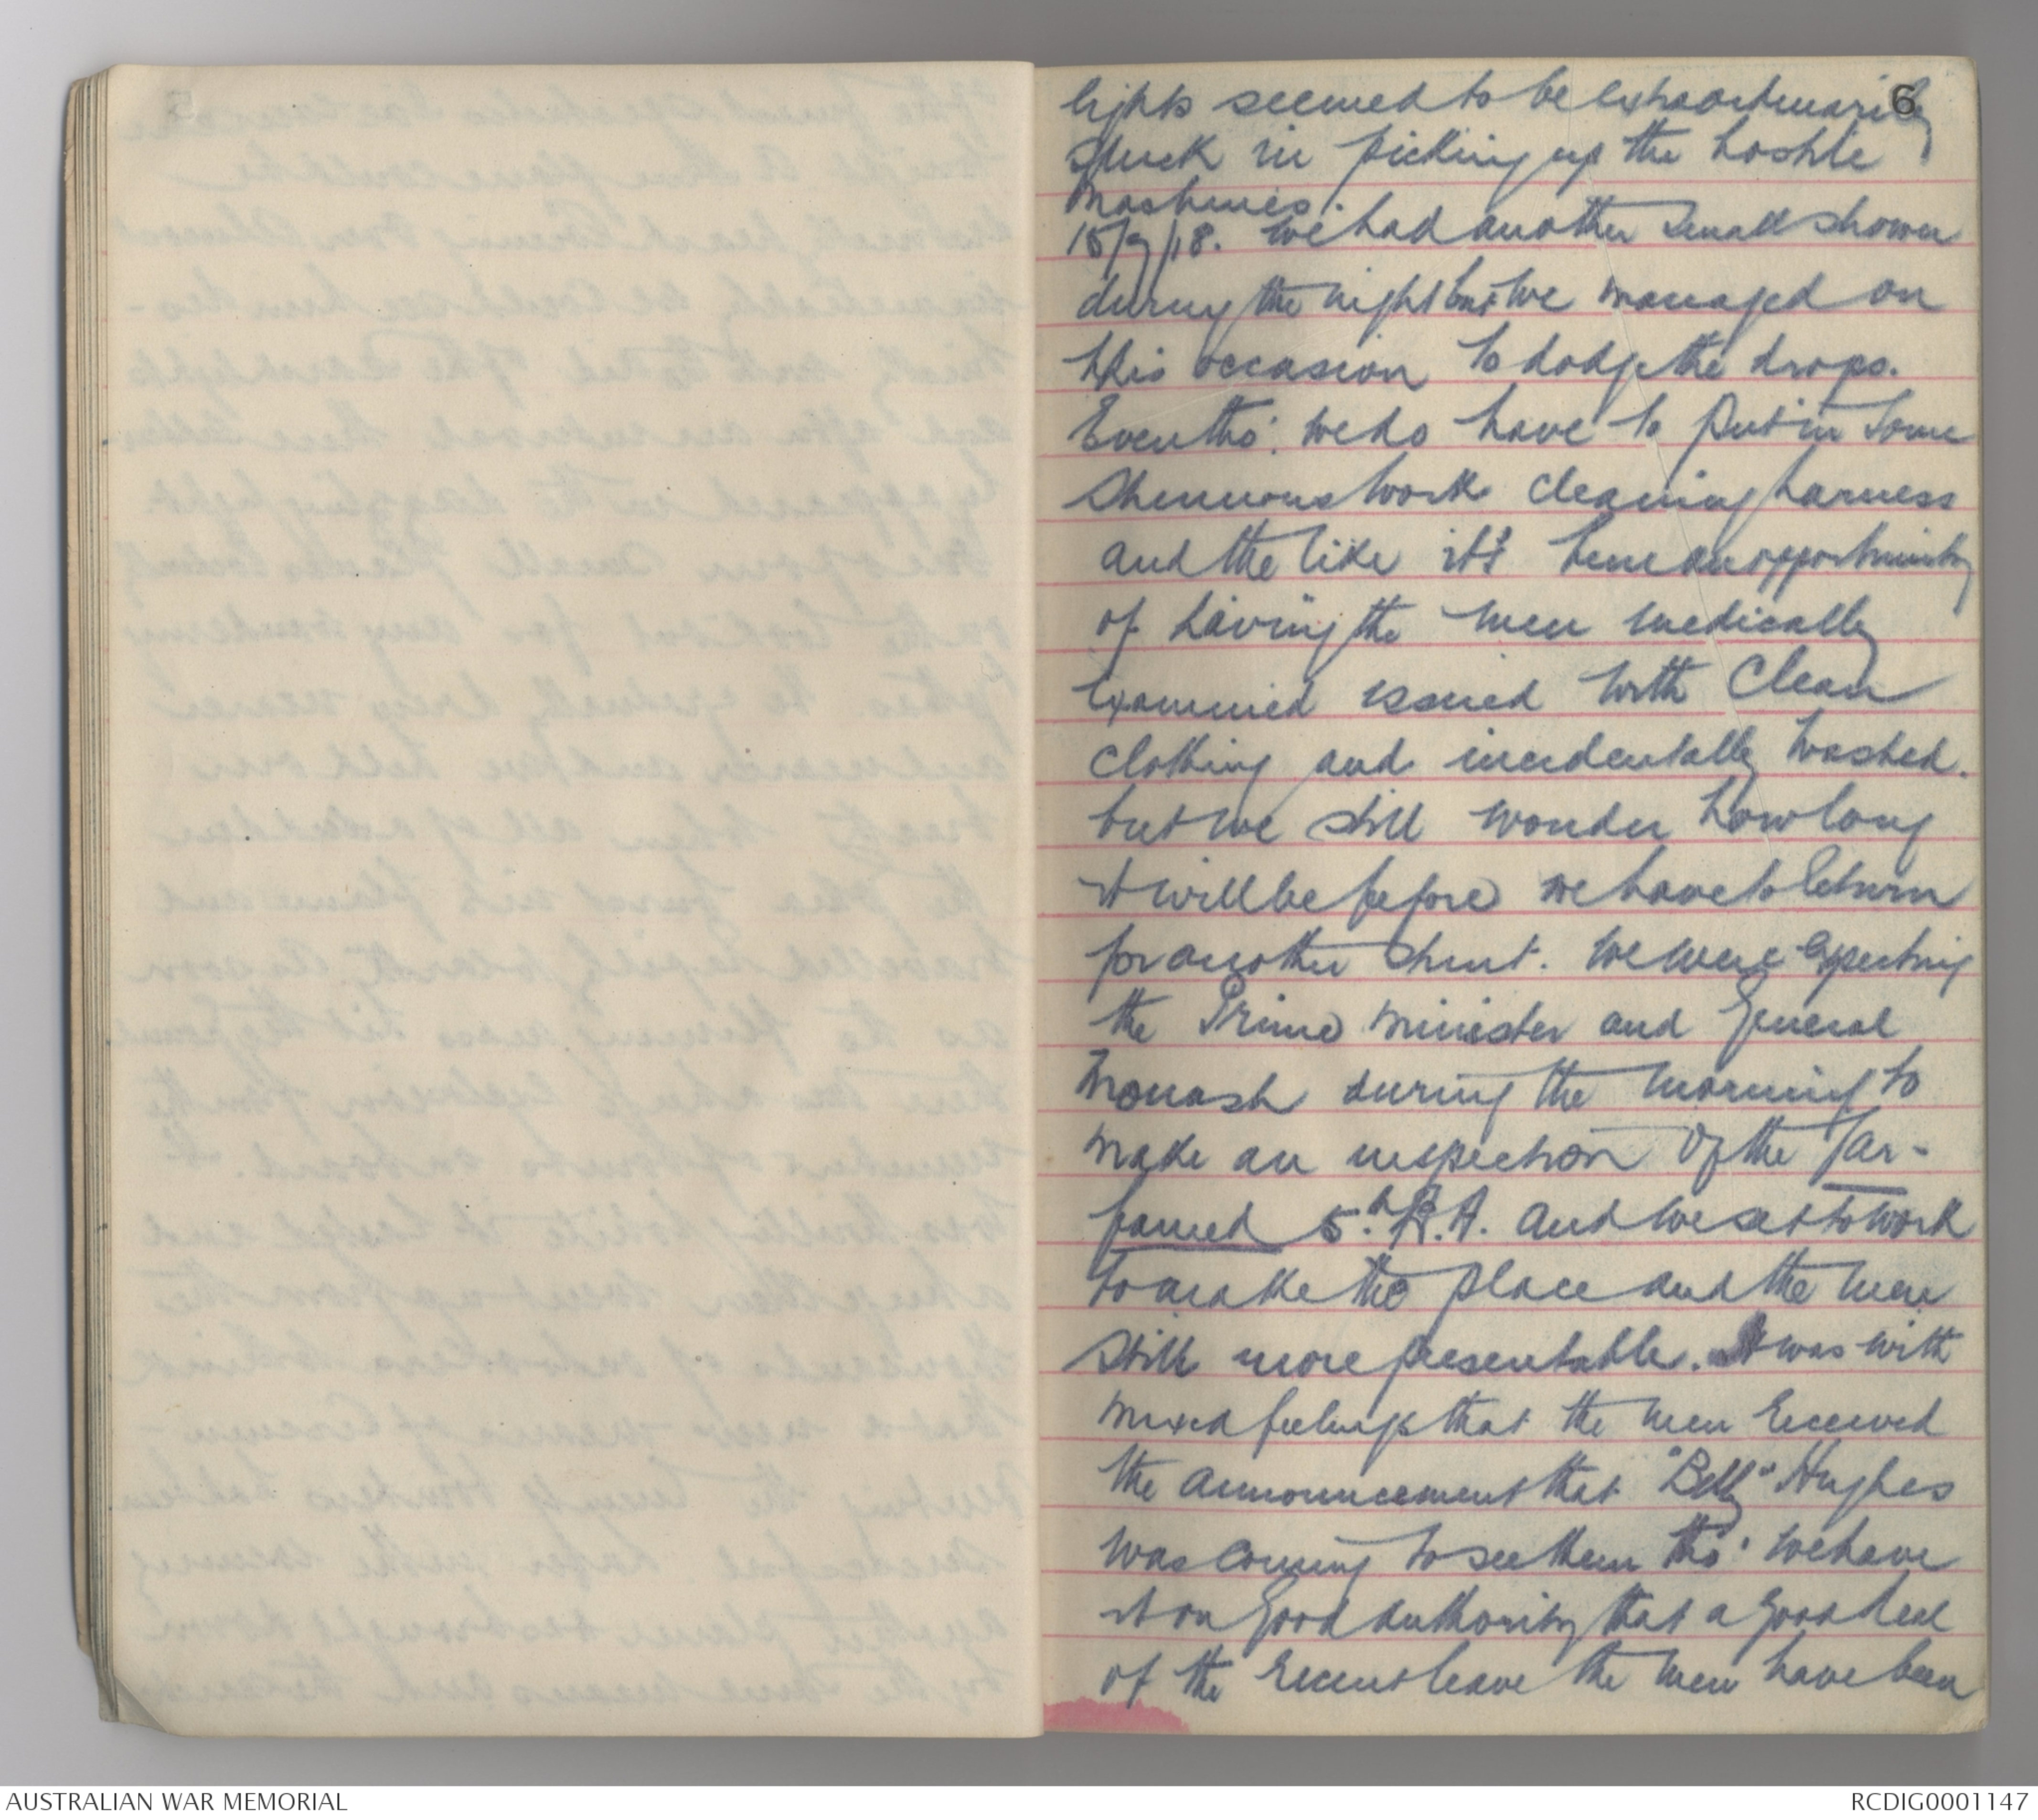 6
lights seemed to be extraordinarily
quick in picking up the hostile
machines.
15/9/18. We had another small shower
during the night but we managed on
this occasion to dodge the drops.
Even tho' we do have to put in some
strenuous work cleaning harness
and the like it's been an opportunity
of having the men medically
examined issued with clean
clothing and incidentally washed.
but we still wonder how long
it will be before we have to return
for another stunt. We were expecting
the Prime Minister and General
Monash during the morning to
make an inspection of the far-
famed 5th B.A. and we set to work
to make the place and the men
still more presentable. It was with
mixed feelings that the men received
the announcement that "Billy" Hughes
was coming to see them tho' we have
it on good authority that a good deal
of the recent leave the men have been
AUSTRALIAN WAR MEMORIAL
RCDIG0001147